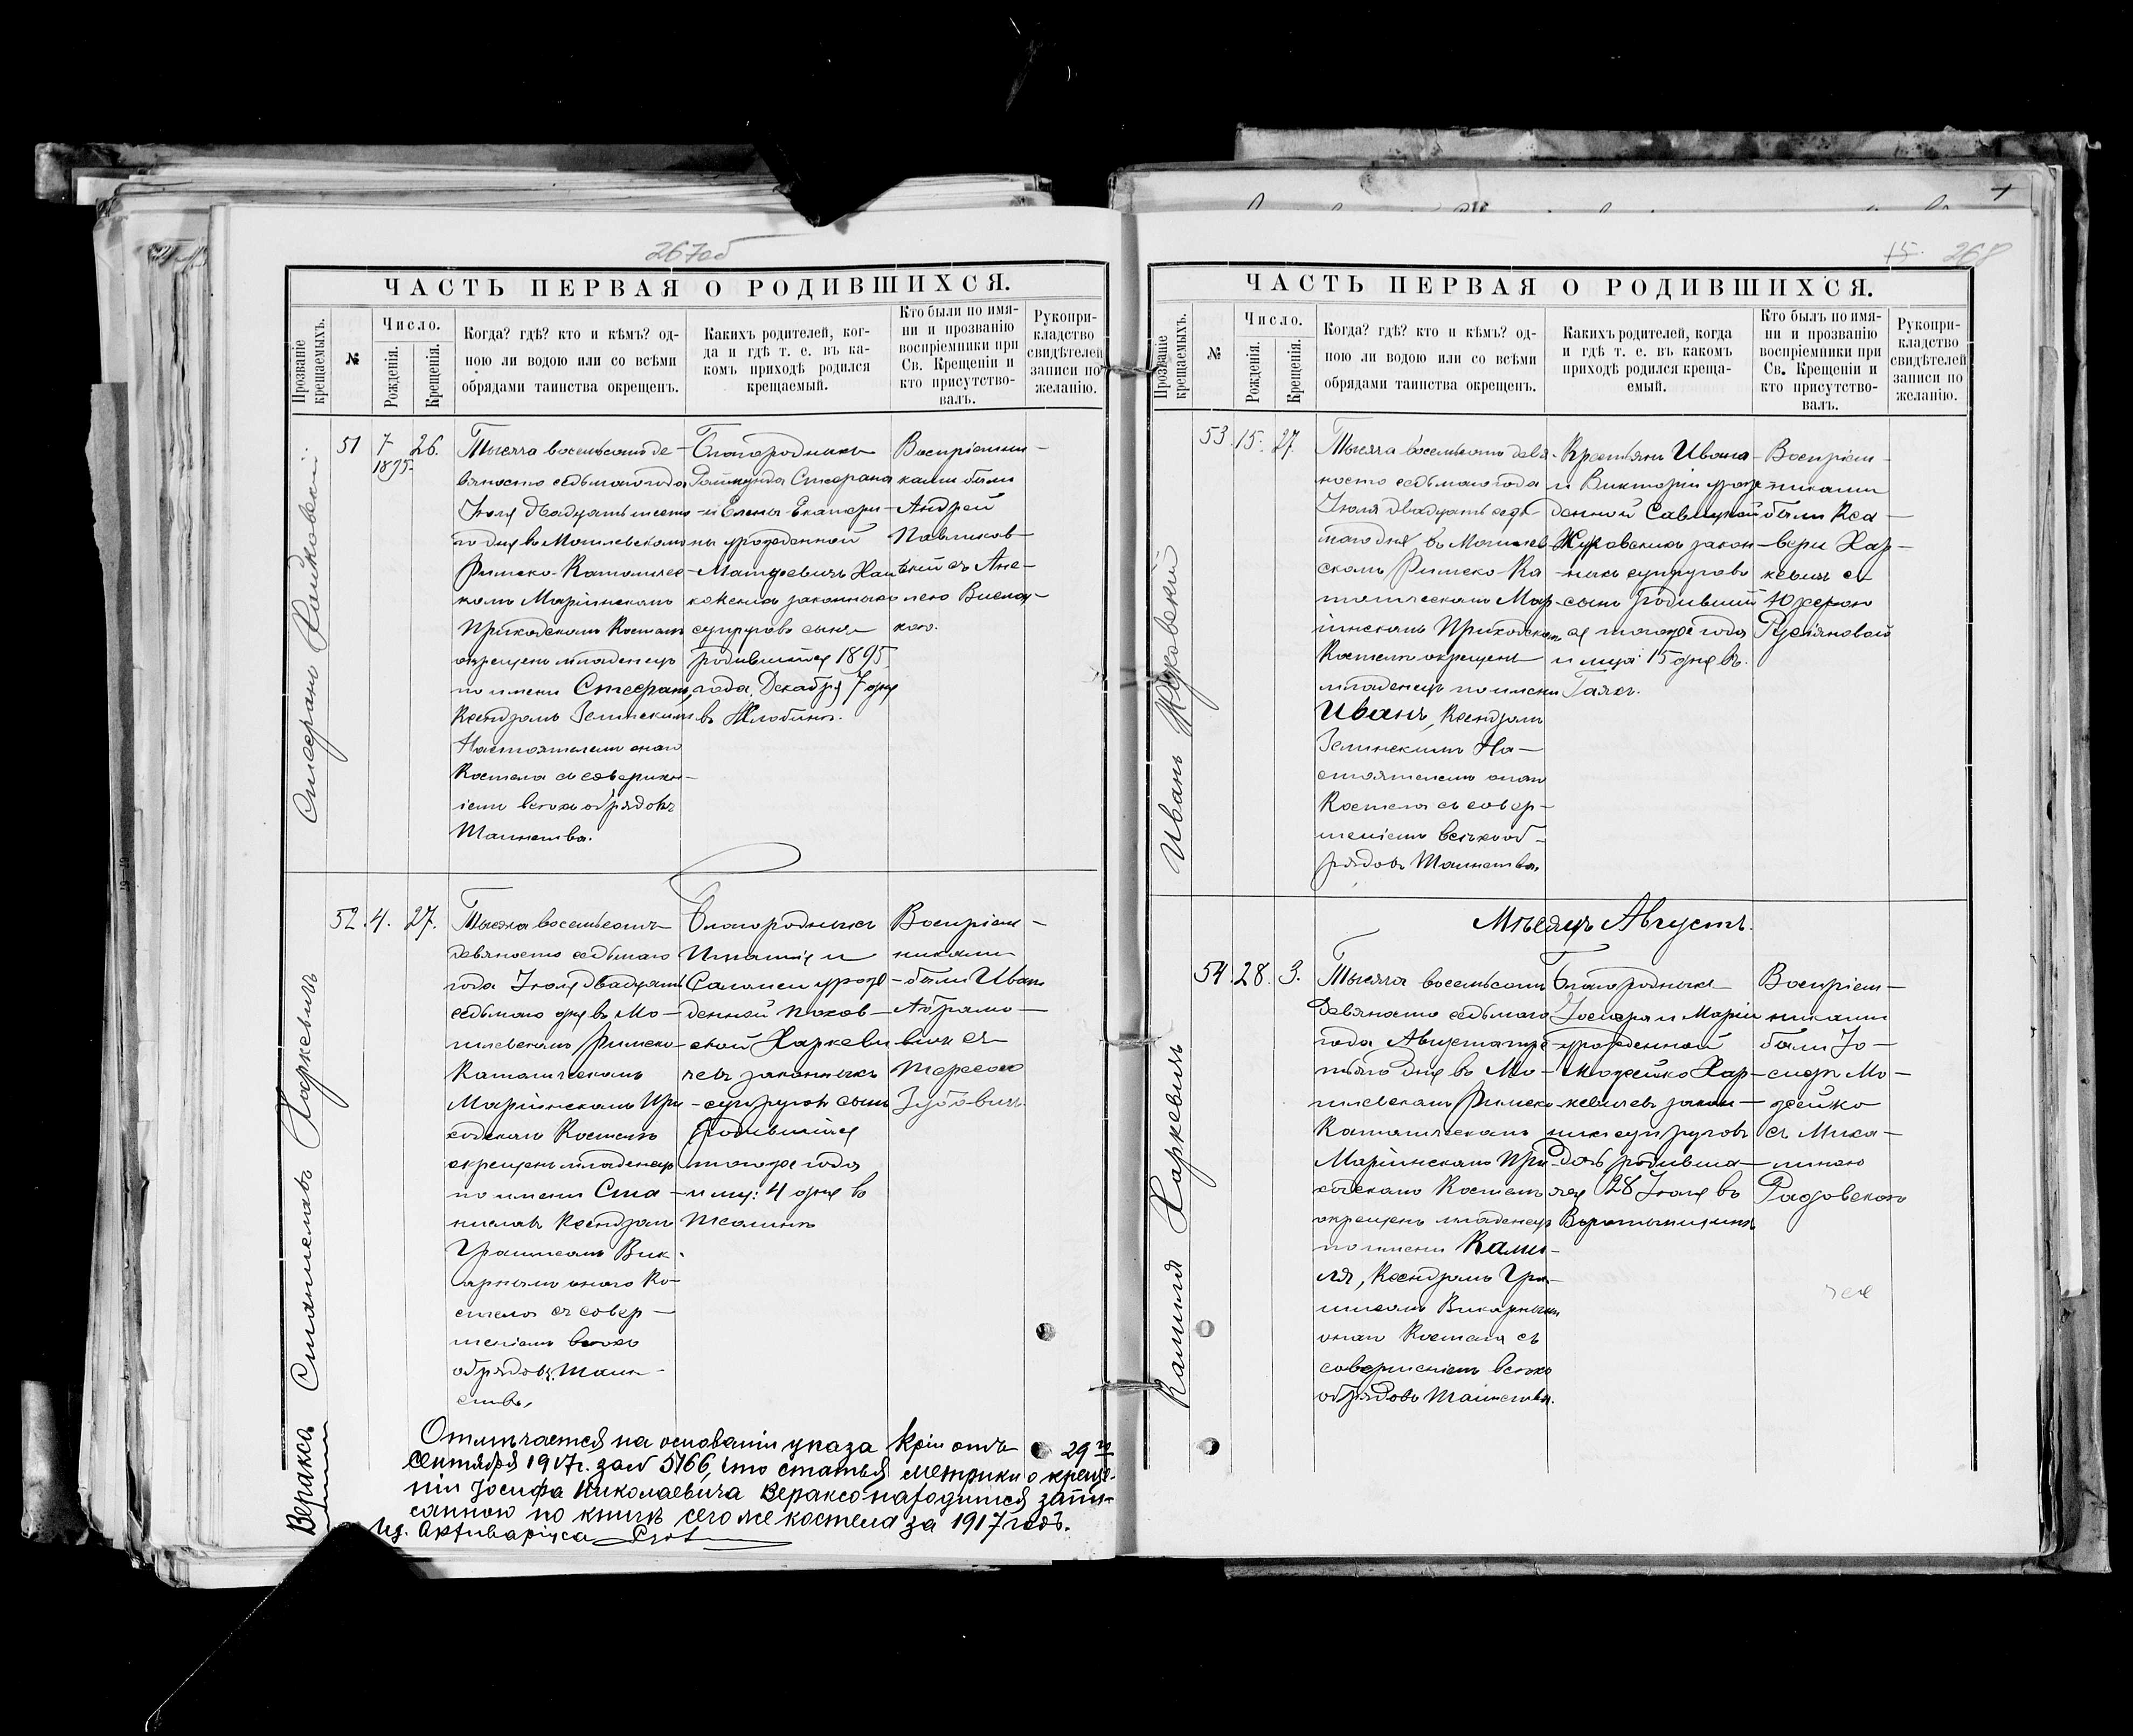 267об
ЧАСТЬ ПЕРВАЯ О РОДИВШИХСЯ.
Прозваніе крещаемыхъ.
№
Число.
Рожденія.
Крещенія.
Когда? гдѣ? кто и кѣмъ? од-
ною ли водою или со всѣми
обрядами таинства окрещенъ.
Какихъ родителей, ког-
да и гдѣ т. е. въ ка-
комъ приходѣ родился
крещаемый.
Кто были по имя-
ни и прозванію
воспріемники при
Св. Крещеніи и
кто присутство-
валъ.
Рукопри-
кладство
свидѣтелей
записи по
желанію.
Стефанъ
51
7
1895
26.
Тысяча восемьсотъ де-
вяносто седьмого года
Іюля двадцать шесто
го дня въ Могилевскомъ
Римско-Католичес-
комъ Маріинскомъ
Приходскомъ Костелѣ
окрещенъ младенецъ
по имени Стефанъ,
Ксендзомъ Зелинскимъ
Настоятелемъ онаго
Костела съ соверше-
ніемъ всѣхъ обрядовъ
Таинства.
Благородныхъ
Раймунда Стефана
и Елены Екатери-
ны урожденной
законныхъ
супруговъ сынъ
родившійся 1895
года, Декабря 7 дня
въ Жлобинѣ.
Воспріемни-
ками были
Андрей
Павликов-
скій съ Ане-
лею
Станиславъ Харкевичъ
52.
4.
27.
Тысяча восемьсотъ
девяносто седьмого
года Іюля двадцать
седьмого дня въ Мо-
гилевскомъ Римско-
Католическомъ
Маріинскомъ При
ходскомъ Костелѣ
окрещенъ младенецъ
по имени Ста-
ниславъ Ксендзомъ
Вик-
арнымъ онаго Ко-
стела съ совер-
шеніемъ всѣхъ
обрядовъ Таин-
ства.
Благородныхъ
Игнатія и
Саломеи урож-
денной
Харкеви
чевъ законныхъ
супруговъ сынъ
родившійся
тогоже года
и мца: 4 дня въ
Воспріем-
никами
были Иванъ
Абрамо-
вичъ съ
Терезою
Зубовичъ.
Вераксо
Отмѣчается на основаніи указа Кріи отъ 29го
Сентября 1917г. за № 5166, что статья метрики о креще-
ніи Іосифа Николаевича Вераксо находится запи-
санною по книгѣ сего же костела за 1917 годъ.
Архиваріуса
15. 268
ЧАСТЬ ПЕРВАЯ О РОДИВШИХСЯ.
Прозваніе крещаемыхъ.
№
Число.
Рожденія.
Крещенія.
Когда? гдѣ? кто и кѣмъ? од-
ною ли водою или со всѣми
обрядами таинства окрещенъ.
Какихъ родителей, когда
и гдѣ т. е. въ какомъ
приходѣ родился креща-
емый.
Кто былъ по имя-
ни и прозванію
воспріемники при
Св. Крещеніи и
кто присутство-
валъ.
Рукопри-
кладство
свидѣтелей
записи по
желанію.
Иванъ Жуковскій
53.
15.
27.
Тысяча восемьсотъ девя-
носто седьмого года
Іюля двадцать седь
мого дня въ Могилев
скомъ Римско-Ка
толическомъ Мар-
іинскомъ Приходскомъ
Костелѣ окрещенъ
младенецъ по имени
Иванъ, Ксендзомъ
Зелинскимъ На-
стоятелемъ онаго
Костела съ совер-
шеніемъ всѣхъ об-
рядовъ Таинства.
Крестьянъ Ивана
и Викторіи урож-
денной Савицкой
Жуковскихъ закон-
ныхъ супруговъ
сынъ родивший
ся тогоже года
и мца: 15 дня въ
Воспріем-
никами
были Кса-
верій Хар-
кевичъ съ
Мѣсяцъ Августъ.
Камиля Харкевичъ
54.
28.
3.
Тысяча восемьсотъ
девяносто седьмого
года Августа тре-
тьяго дня въ Мо-
гилевскомъ Римско
Католическомъ
Маріинскомъ При-
ходскомъ Костелѣ
окрещенъ младенецъ
по имени Ками-
ля, Ксендзомъ
Викарнымъ
онаго Костела съ
совершеніемъ всѣхъ
обрядовъ Таинства.
Благородныхъ
Іосифа и Маріи
урожденной
Можейко Хар-
кевичевъ закон-
ныхъ супруговъ
дочь родивша-
яся 28 Іюля въ
Воспріем-
никами
были Іо-
сифъ Мо-
жейко
съ Миха-
линою